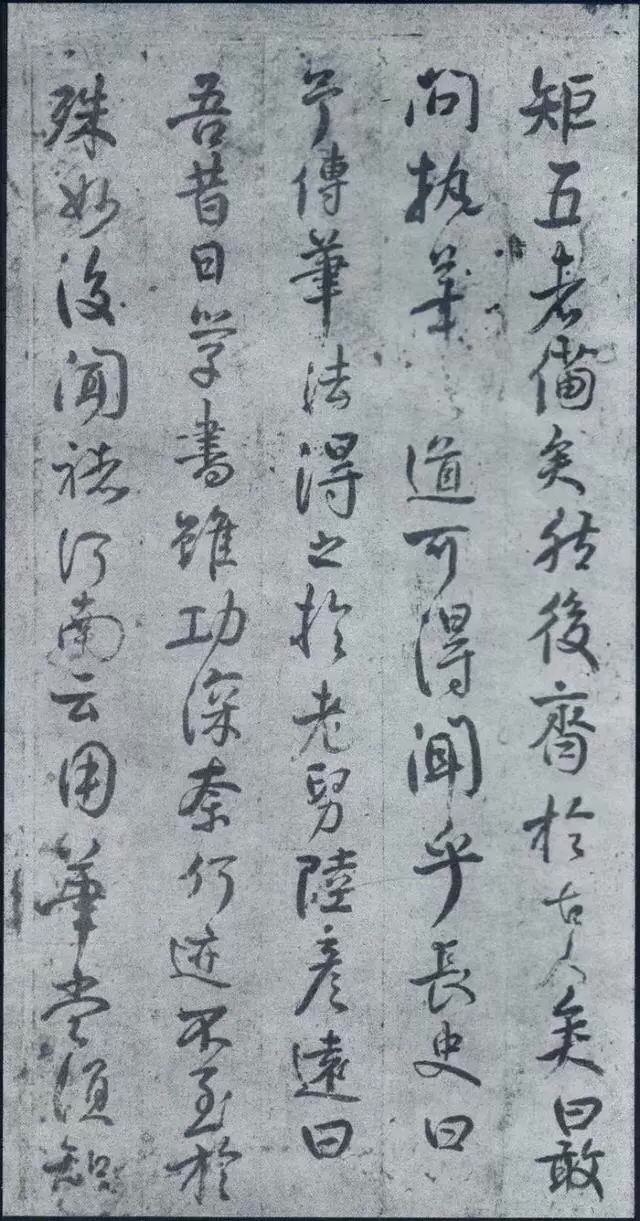 矩五者備矣然後齊於古人矣曰敢
問執筆道可得聞乎長史曰
予傳筆法得之於老舅陸彥遠曰
吾昔日学書雖功深奈何迹不至於
殊妙後聞褚河南云用筆當須知